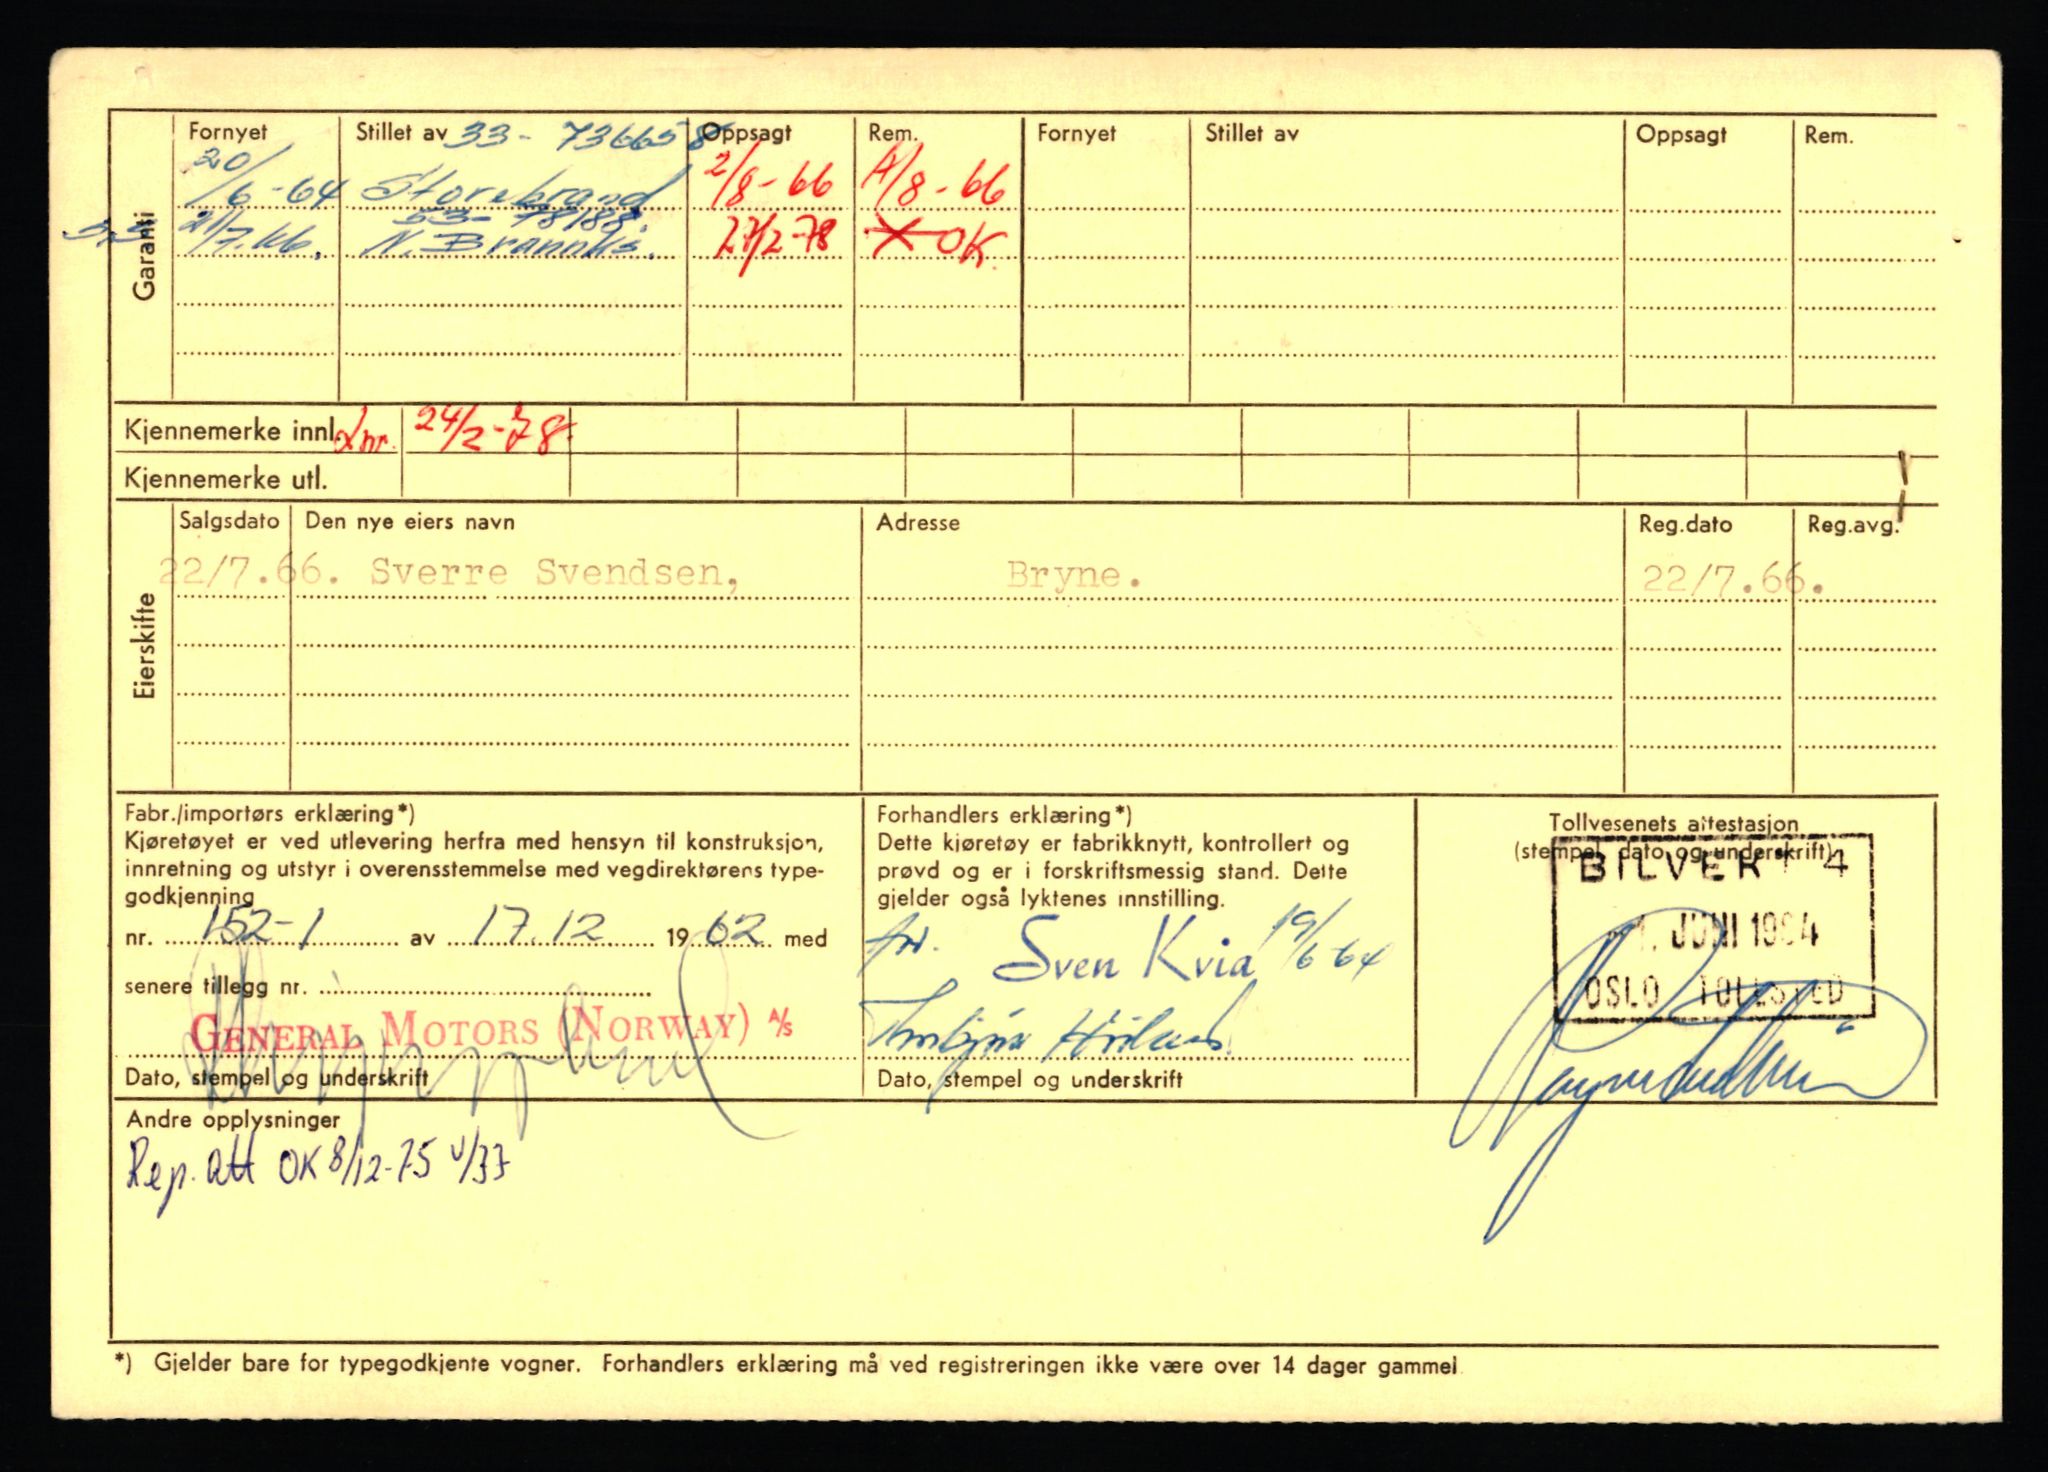 Garanti
Fornyet Stillet av 33- 736658 Oppsagt Rem. Fornyet Stillet av Oppsagt Rem.
20/6-64 Storebrand 2/8-66 4/8-66
33 53- 78188.
21/7.66. N. Brannks. 27/2-78 X OK
Kjennemerke innl. 2nr. 24/2-78.
Kjennemerke utl.
Eierskifte
Salgsdato Den nye eiers navn Adresse Reg.dato Reg.avg.
22/7.66. Sverre Svendsen, Bryne. 22/7.66.
Fabr./importørs erklæring*)
Kjøretøyet er ved utlevering herfra med hensyn til konstruksjon,
innretning og utstyr i overensstemmelse med vegdirektørens type-
godkjenning
nr. 152-1 av 17.12 1962 med
senere tillegg nr.
GENERAL MOTORS (NORWAY) A/S
Dato, stempel og underskrift
Forhandlers erklæring*)
Dette kjøretøy er fabrikknytt, kontrollert og
prøvd og er i forskriftsmessig stand. Dette
gjelder også lyktenes innstilling.
for. Sven Kvia 19/6-64
Dato, stempel og underskrift
Tollvesenets attestasjon
(stempel, dato og underskrift)
BILVERK 4
1. JUNI 1964
OSLO TOLLSTED
Andre opplysninger
Rep. att OK 8/12-75 v/33
*) Gjelder bare for typegodkjente vogner. Forhandlers erklæring må ved registreringen ikke være over 14 dager gammel